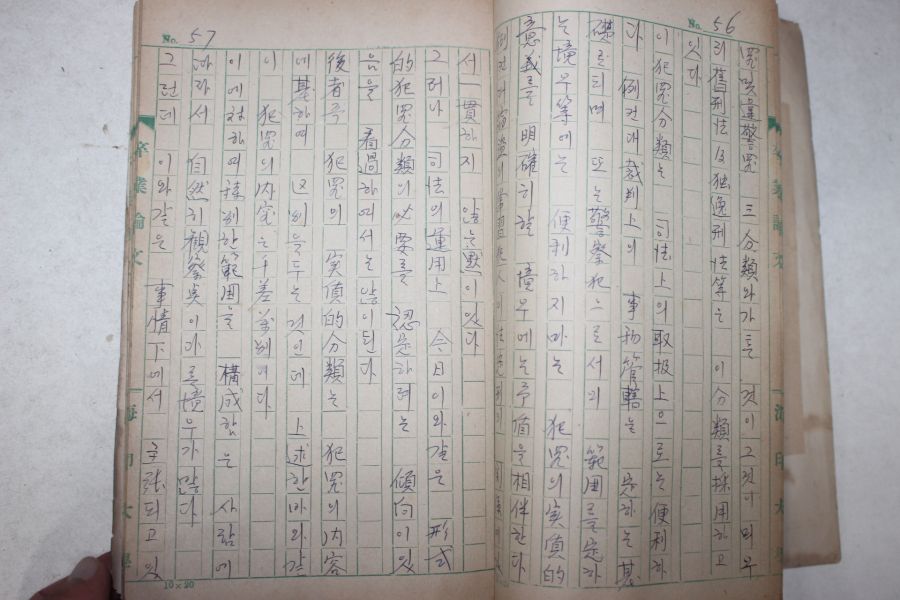 No. 56
罪及違警罪 三分類와가튼 것이 그것이며 우
리 舊刑法及独逸刑法等는 이分類를 採用하고
잇다
이 犯罪分類는 司法上의取扱上으로는 便利하
다 例컨대 裁判上의 事物管轄는 定하는 基
礎르되며 또는 警察犯으로서의 範囲를定하
는境우等에는 便利하지마는 犯罪의実質的
意義를 明確히할 境우에는 를相伴한다
서 一貫하지 안는點이 잇다
그러나 司法의運用上 今日이와갈은 形式
的犯罪分類의必要를 認定하려는 傾向이잇
음을 看過하여서는 안이된다
後者즉 犯罪의 実質的分類는 犯罪의內容
에基하여 区別을두는 것인데 上述한바와갈
이 犯罪의內容는千差萬別이다
이에対하여 한範囲을 構成함은 사람에
따라서 自然히観察点이다를境우가만타
그런데 이와갈은 事情下에서 主張되고 잇
No. 57
卒業論文
海印大學
10×20